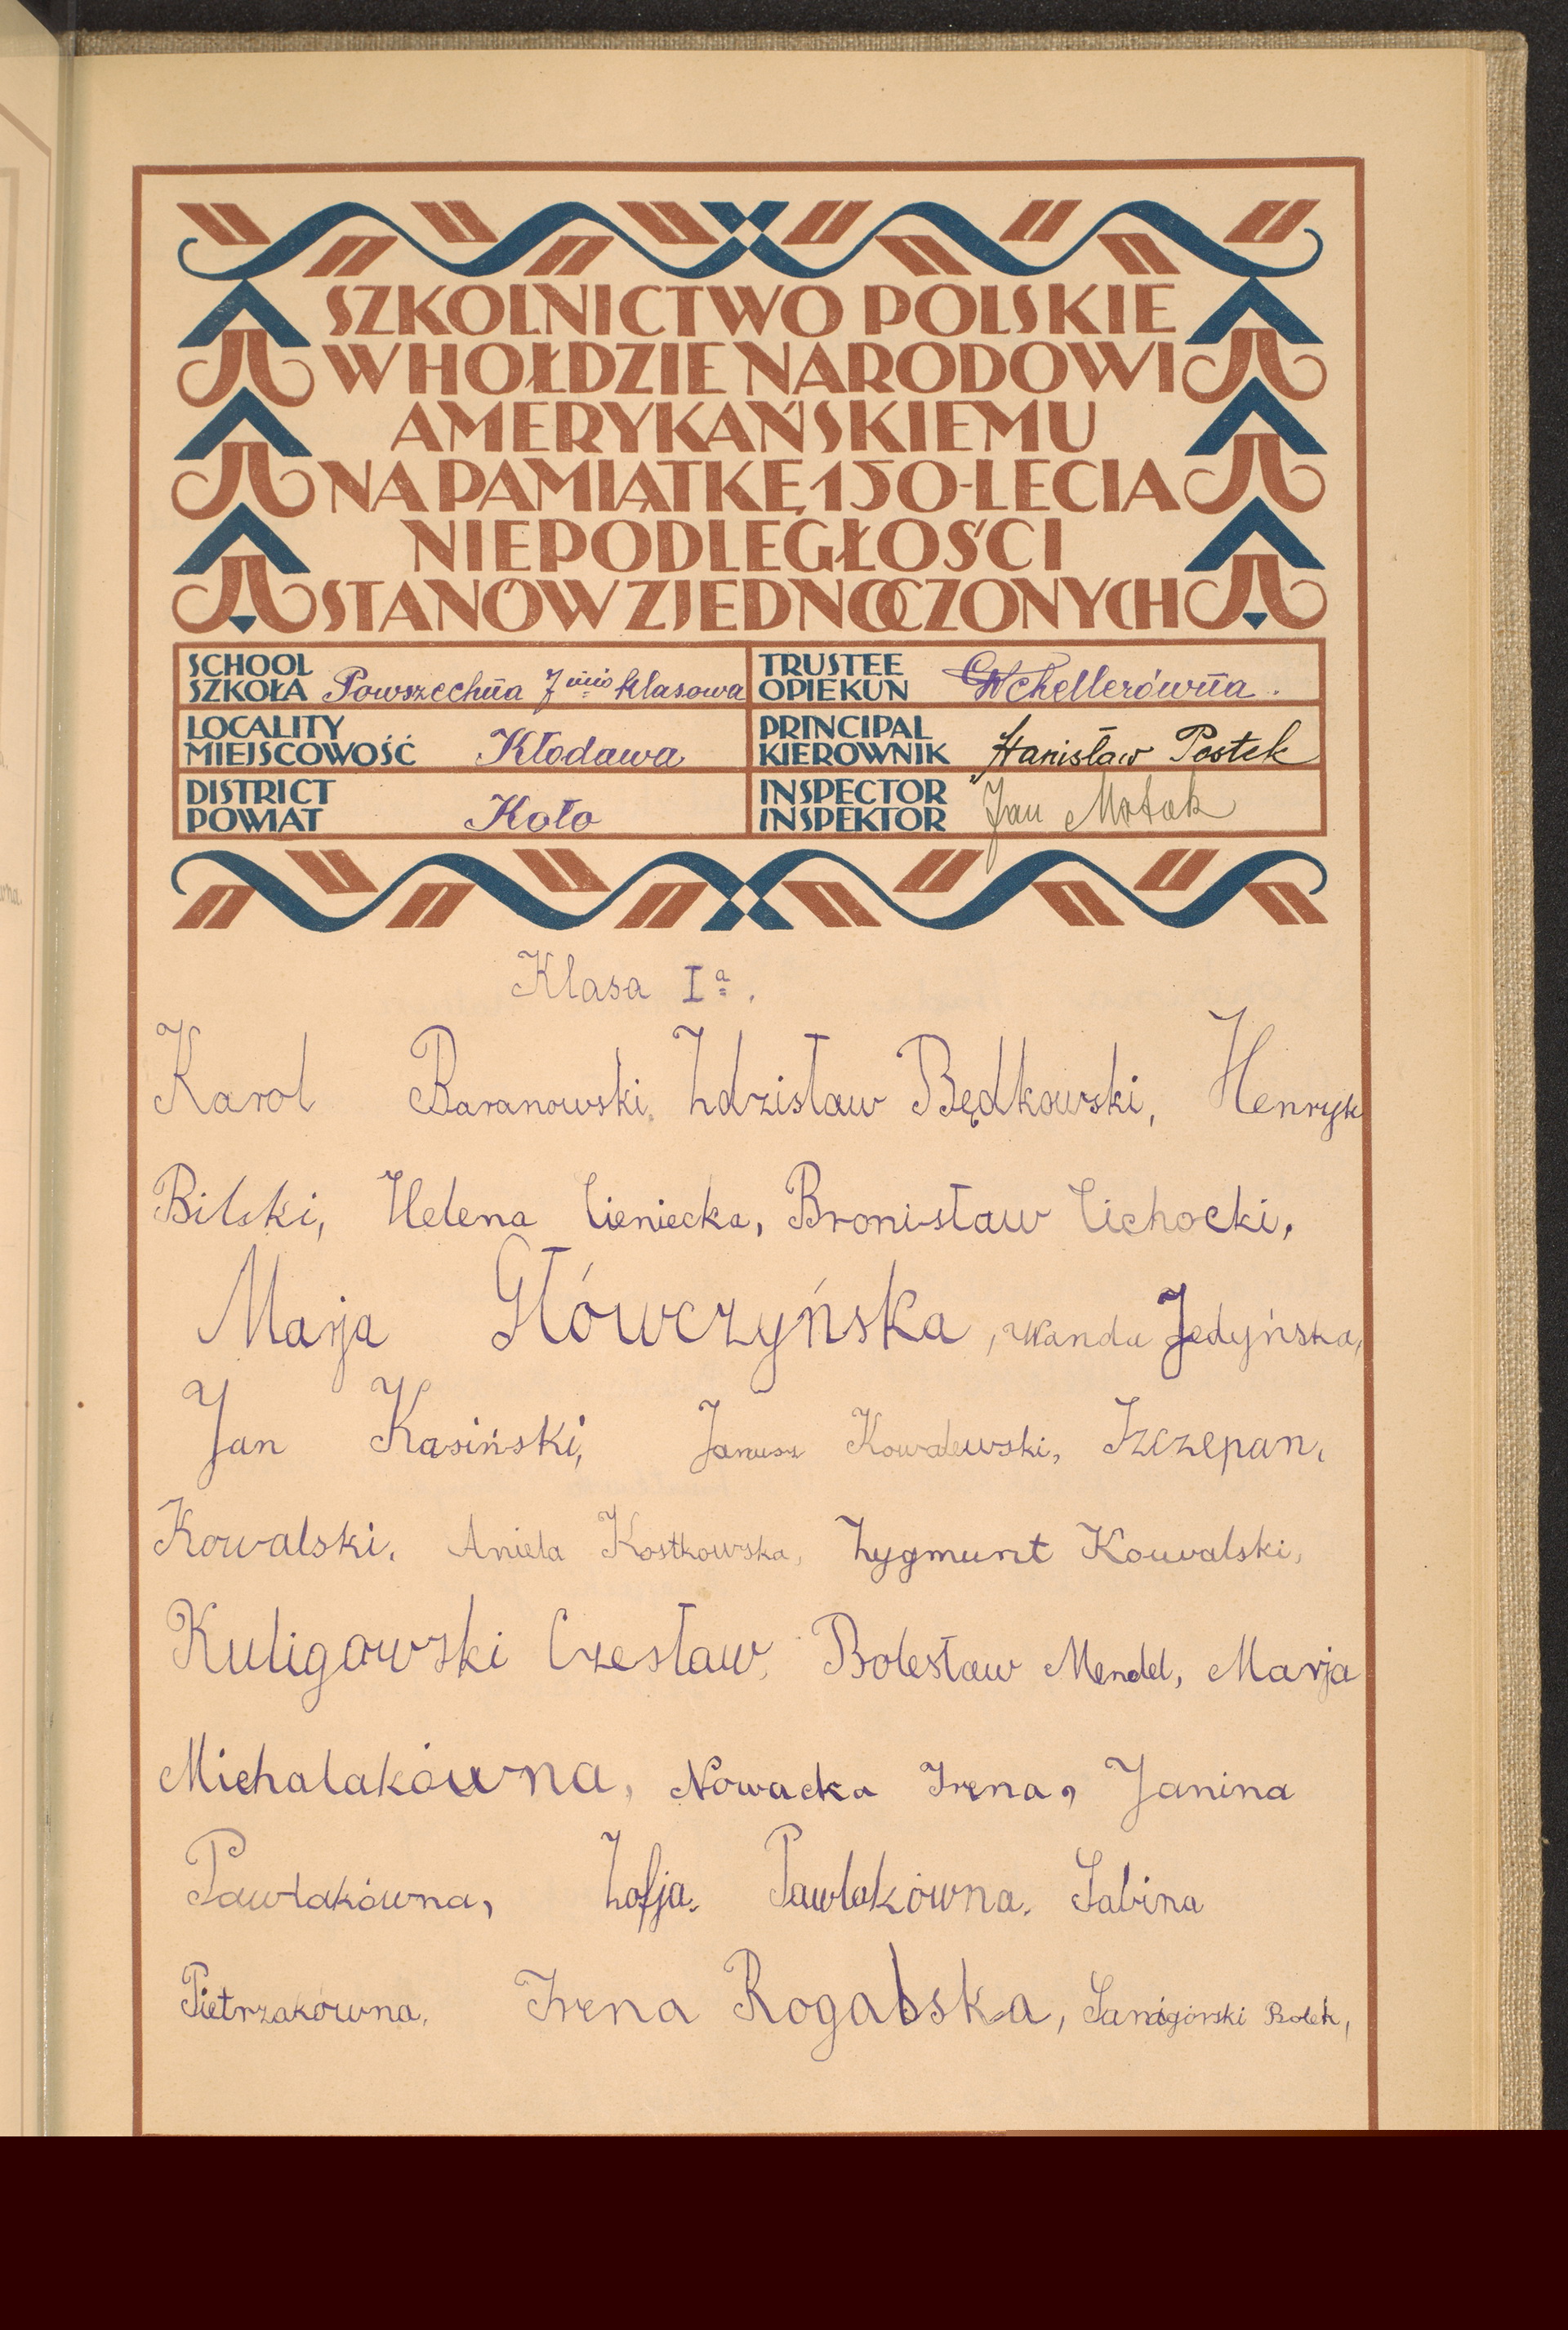 SZKOLNICTWO POLSKIE
W HOŁDZIE NARODOWI
AMERYKAŃSKIEMU
NA PAMIĄTKĘ 150-LECIA
NIEPODLEGŁOŚCI
STANÓW ZJEDNOCZONYCH
SCHOOL
SZKOŁA Powszechna 7 mio klasowa
TRUSTEE
OPIEKUN
LOCALITY
MIEJSCOWOŚĆ Kłodawa
PRINCIPAL
KIEROWNIK Stanisław Postek
DISTRICT
POWIAT Koło
INSPECTOR
INSPEKTOR Jan
Klasa Ia.
Karol Baranowski, Zdzisław Będkowski, Henryk
Bilski, Helena Cieniecka, Bronisław Cichocki,
Marja Główczyńska, Wanda Jedyńska,
Jan Kasiński, Janusz Kowalewski, Szczepan,
Kowalski, Aniela Kostkowska, Zygmunt Kowalski,
Kuligowski Czesław, Bolesław Mendel, Marja
Michalakówna, Nowacka Irena, Janina
Pawlakówna, Zofja. Pawlakówna. Sabina
Pietrzakówna, Irena Rogalska, Sanigórski Bolek,